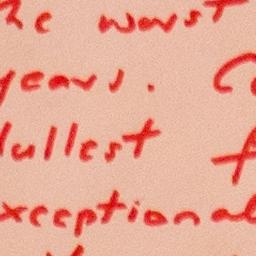 he worst
years. Co
dullest f
exceptional